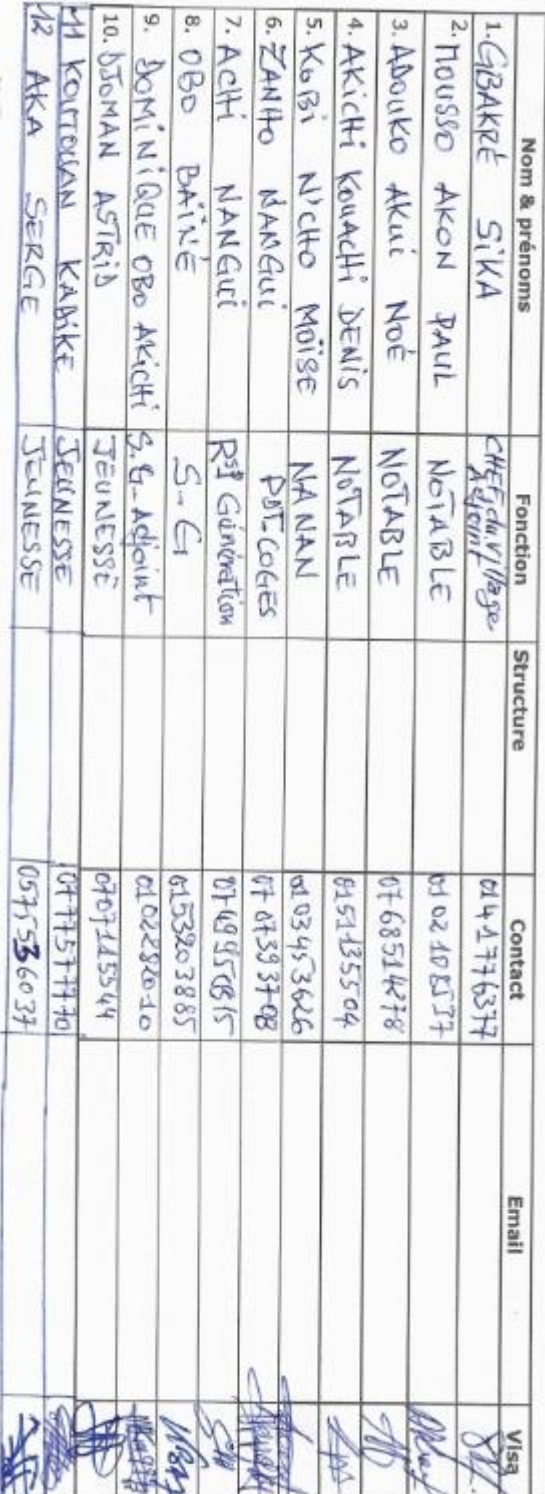 Nom & prénoms Fonction Structure Contact Email Visa
1. GBAKRE SIKA CHEF du village Adjoint 0141776377
2. MOUSSO AKON PAUL NOTABLE 0102108537
3. ADOUKO AKUI NOÉ NOTABLE 0768514278
4. AKICHI KOUACHI DENIS NOTABLE 0151135504
5. KOBI N'CHO MOÏSE NANAN 0103453626
6. ZANHO NANGUI PDT-COGES 0707393708
7. ACHI NANGUI Génération 0749950815
8. OBO BAÏNÉ S-G 0153203885
9. DOMINIQUE OBO AKICHI S.G-Adjoint 0102282010
10. DJOMAN ASTRID JEUNESSE 0707115544
11 KABIKE JEUNESSE 0777577770
12 AKA SERGE JEUNESSE 0575536037